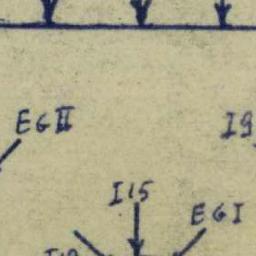 EGII
I9
I15
EGI